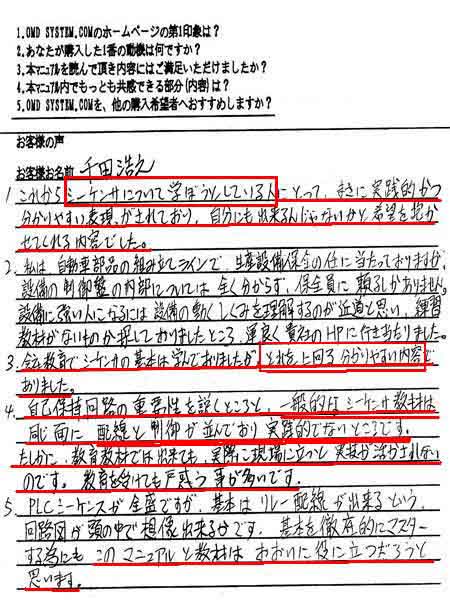 1.OMD SYSTEM.COMのホームページの第1印象は?
2.あなたが購入した1番の動機は何ですか?
3.本マニュアルを読んで頂き内容にはご満足いただけましたか?
4.本マニュアル内でもっとも共感できる部分(内容)は?
5.OMD SYSTEM.COMを、他の購入希望者へおすすめしますか?
お客様の声
お客様お名前 千田浩之
1. これから シーケンサについて学ぼうとしている人にとって、まさに実践的かつ
分かりやすい表現がされており、自分にも出来るんじゃないかと希望を抱か
せてくれる内容でした。
2. 私は自動車部品の組み立てラインで、生産設備保全の仕に当たっておりますが、
設備の制御盤の内部については全く分からず、保全員に頼るしかありません。
設備に強い人になるには設備の動くしくみを理解するのが近道と思い、練習
教材がないものか探しておりましたところ、運良く貴社のHPに行きあたりました。
3. 会社教育でシーケンサの基本は学んでおりましたが、それを上回る分かりやすい内容で
ありました。
4. 自己保持回路の重要性を説くところと、一般的なシーケンサ教材は
同じ面に配線と制御が並んでおり実践的でないところです。
たしかに、教育教材では出来ても、実際に現場に立つと実技が活かされない
のです。教育を受けても戸惑う事が多いです。
5. PLCシーケンスが全盛ですが、基本はリレー配線が出来るという、
回路図が頭の中で想像出来る事です。基本を徹底的にマスター
する為にもこのマニュアルと教材はおおいに役に立つだろうと
思います。